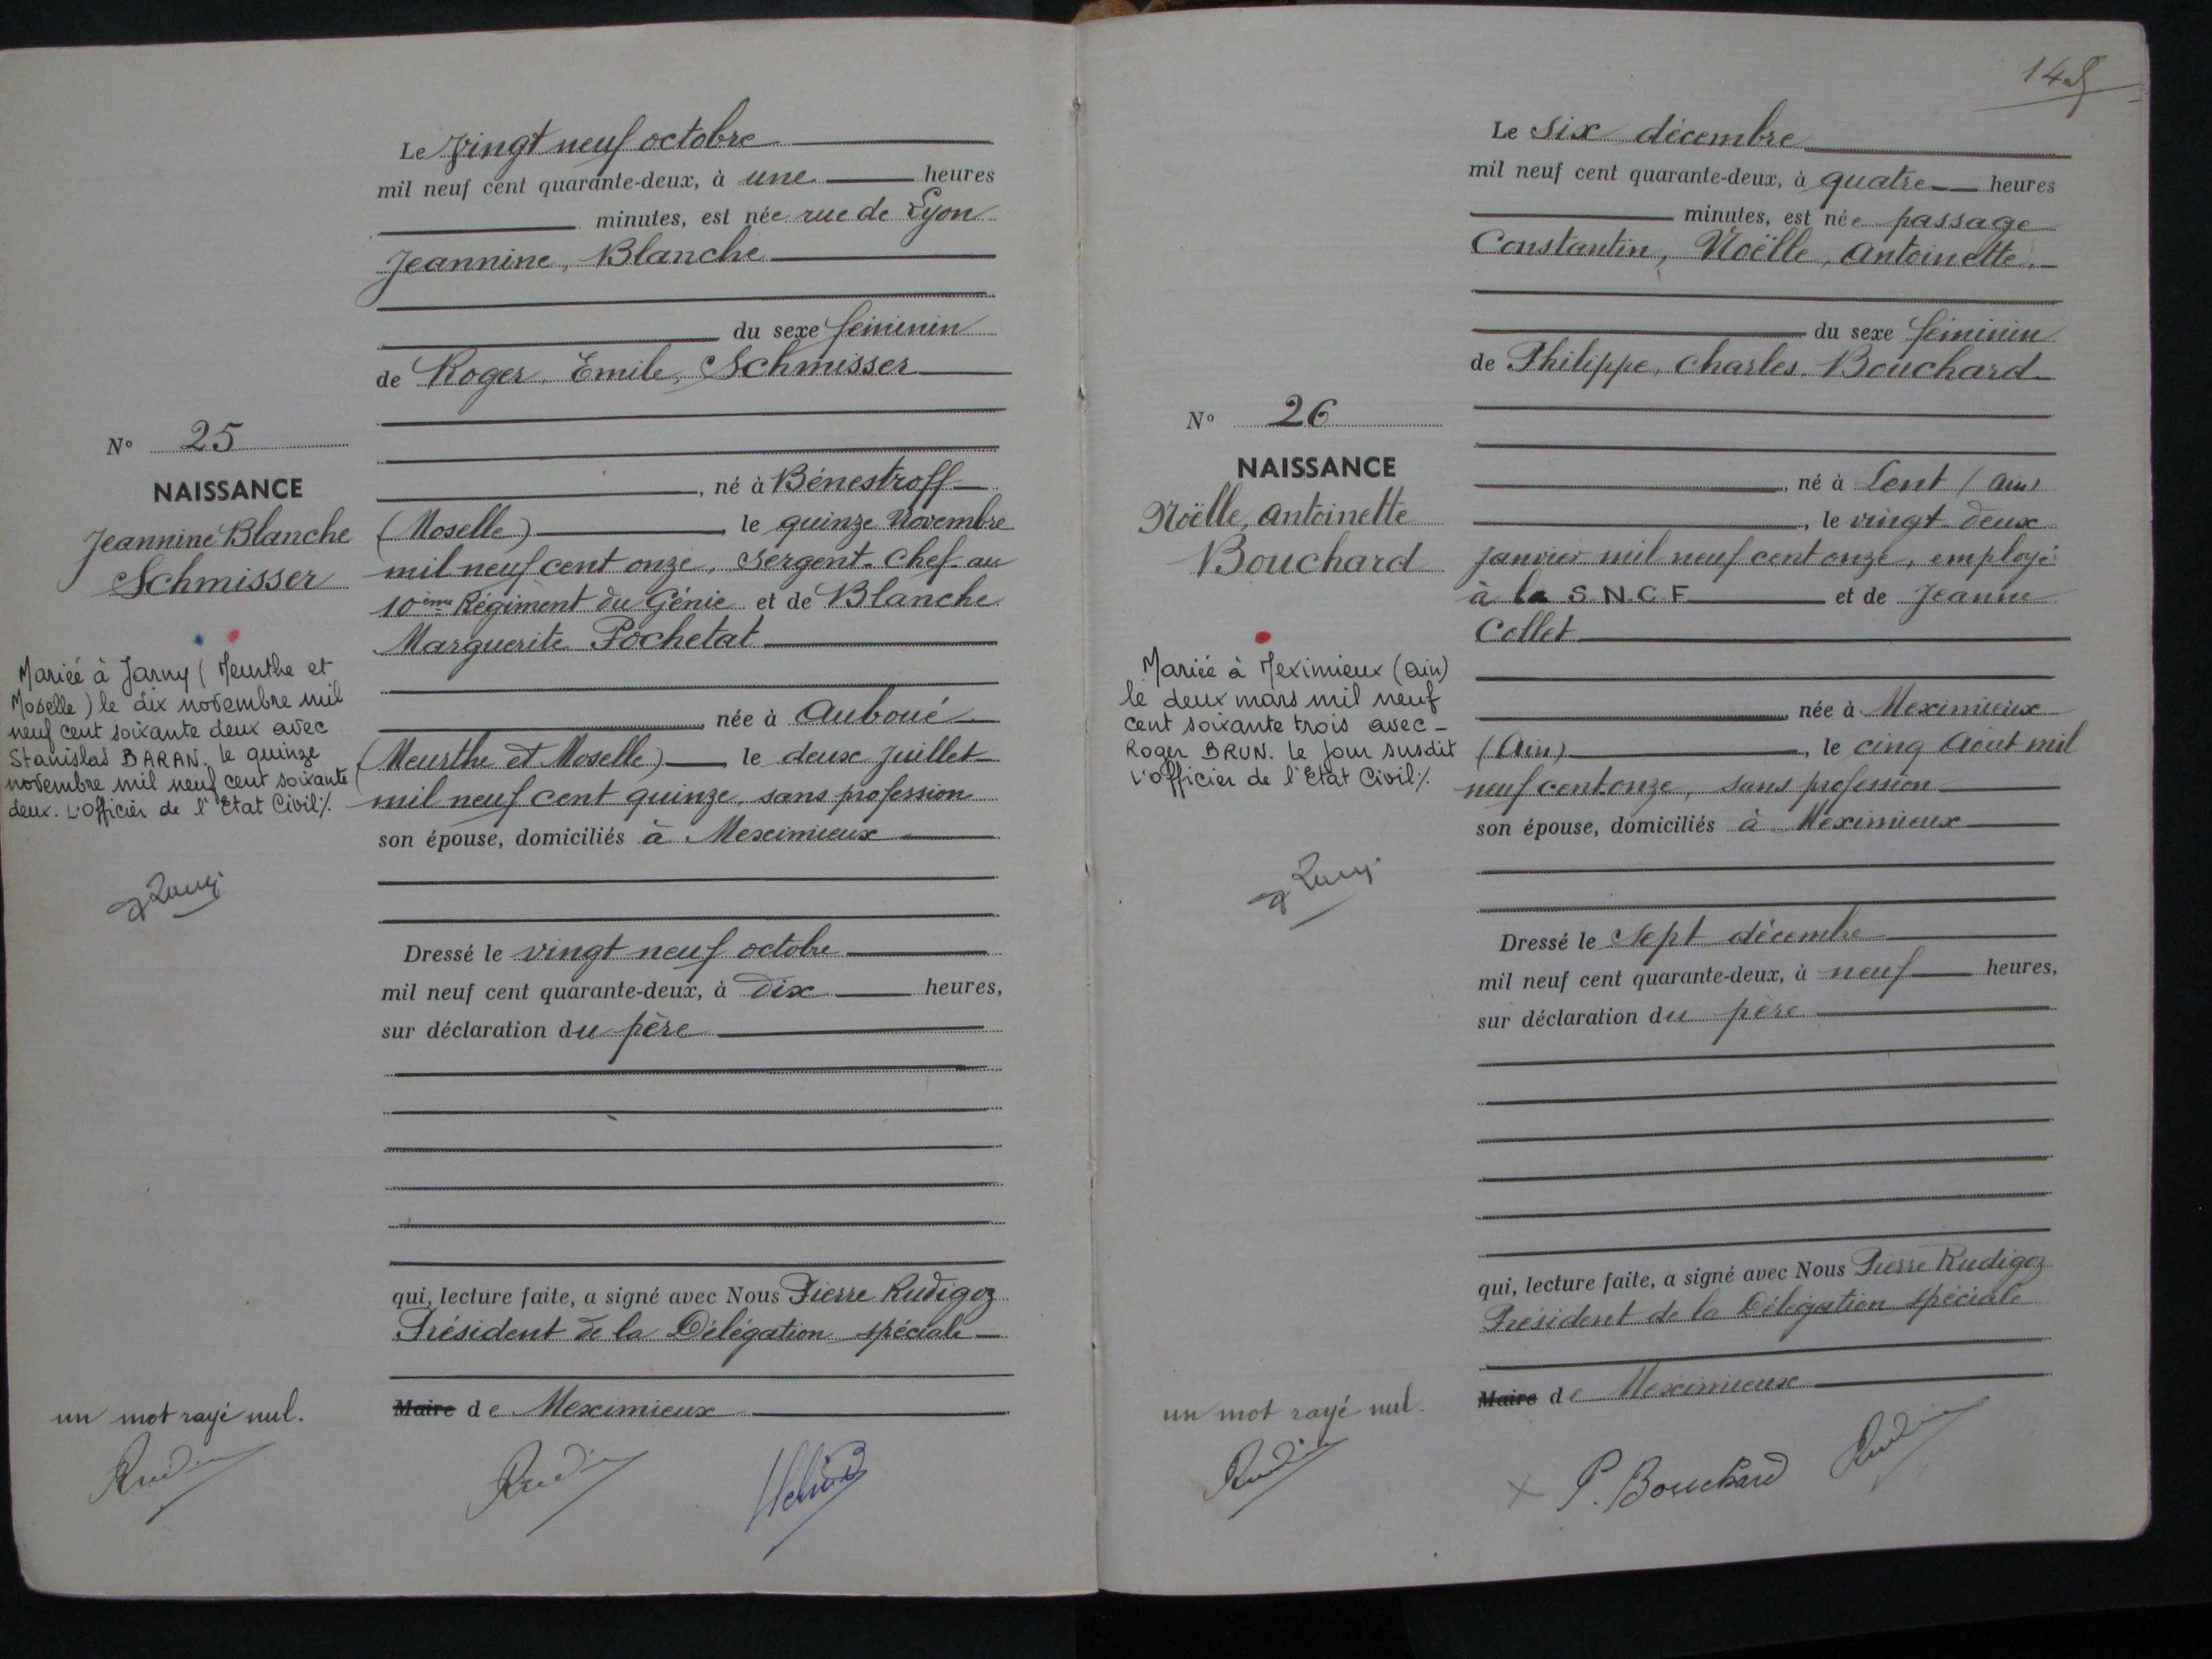 Le vingt neuf octobre
mil neuf cent quarante-deux, à une heures
minutes, est née rue de Lyon
Jeannine, Blanche
du sexe féminin
de Roger, Emile, Schmisser
N° 25
NAISSANCE
Jeannine Blanche
Schmisser
, né à Bénestroff
(Moselle) le quinze Novembre
mil neuf cent onze, Sergent-Chef au
10ème Régiment du Génie et de Blanche
Marguerite Pochetat
née à Auboué
(Meurthe et Moselle) le deux Juillet
mil neuf cent quinze, sans profession
son épouse, domiciliés à Meximieux
Mariée à Jarny (Meurthe et
Moselle) le dix novembre mil
neuf cent soixante deux avec
Stanislas BARAN. Le quinze
novembre mil neuf cent soixante
deux. L'Officier de l'Etat Civil %.
Dressé le vingt neuf octobre
mil neuf cent quarante-deux, à dix heures,
sur déclaration du père
qui, lecture faite, a signé avec Nous Pierre Rudigoz
Président de la Délégation spéciale
Maire de Meximieux
un mot rayé nul.
145
Le six décembre
mil neuf cent quarante-deux, à quatre heures
minutes, est née passage
Constantin, Noëlle, Antoinette,
du sexe féminin
de Philippe, Charles, Bouchard
N° 26
NAISSANCE
Noëlle, Antoinette
Bouchard
, né à Lent (Ain)
, le vingt deux
janvier mil neuf cent onze, employé
à la S.N.C.F. et de Jeanne
Collet
née à Meximieux
(Ain), le cinq Août mil
neuf cent onze, sans profession
son épouse, domiciliés à Meximieux
Mariée à Meximieux (Ain)
le deux mars mil neuf
cent soixante trois avec -
Roger BRUN. Le jour susdit
L'Officier de l'Etat Civil %.
Dressé le sept décembre
mil neuf cent quarante-deux, à neuf heures,
sur déclaration du père
qui, lecture faite, a signé avec Nous Pierre Rudigoz
Président de la Délégation spéciale
Maire de Meximieux
un mot rayé nul.
P. Bouchard